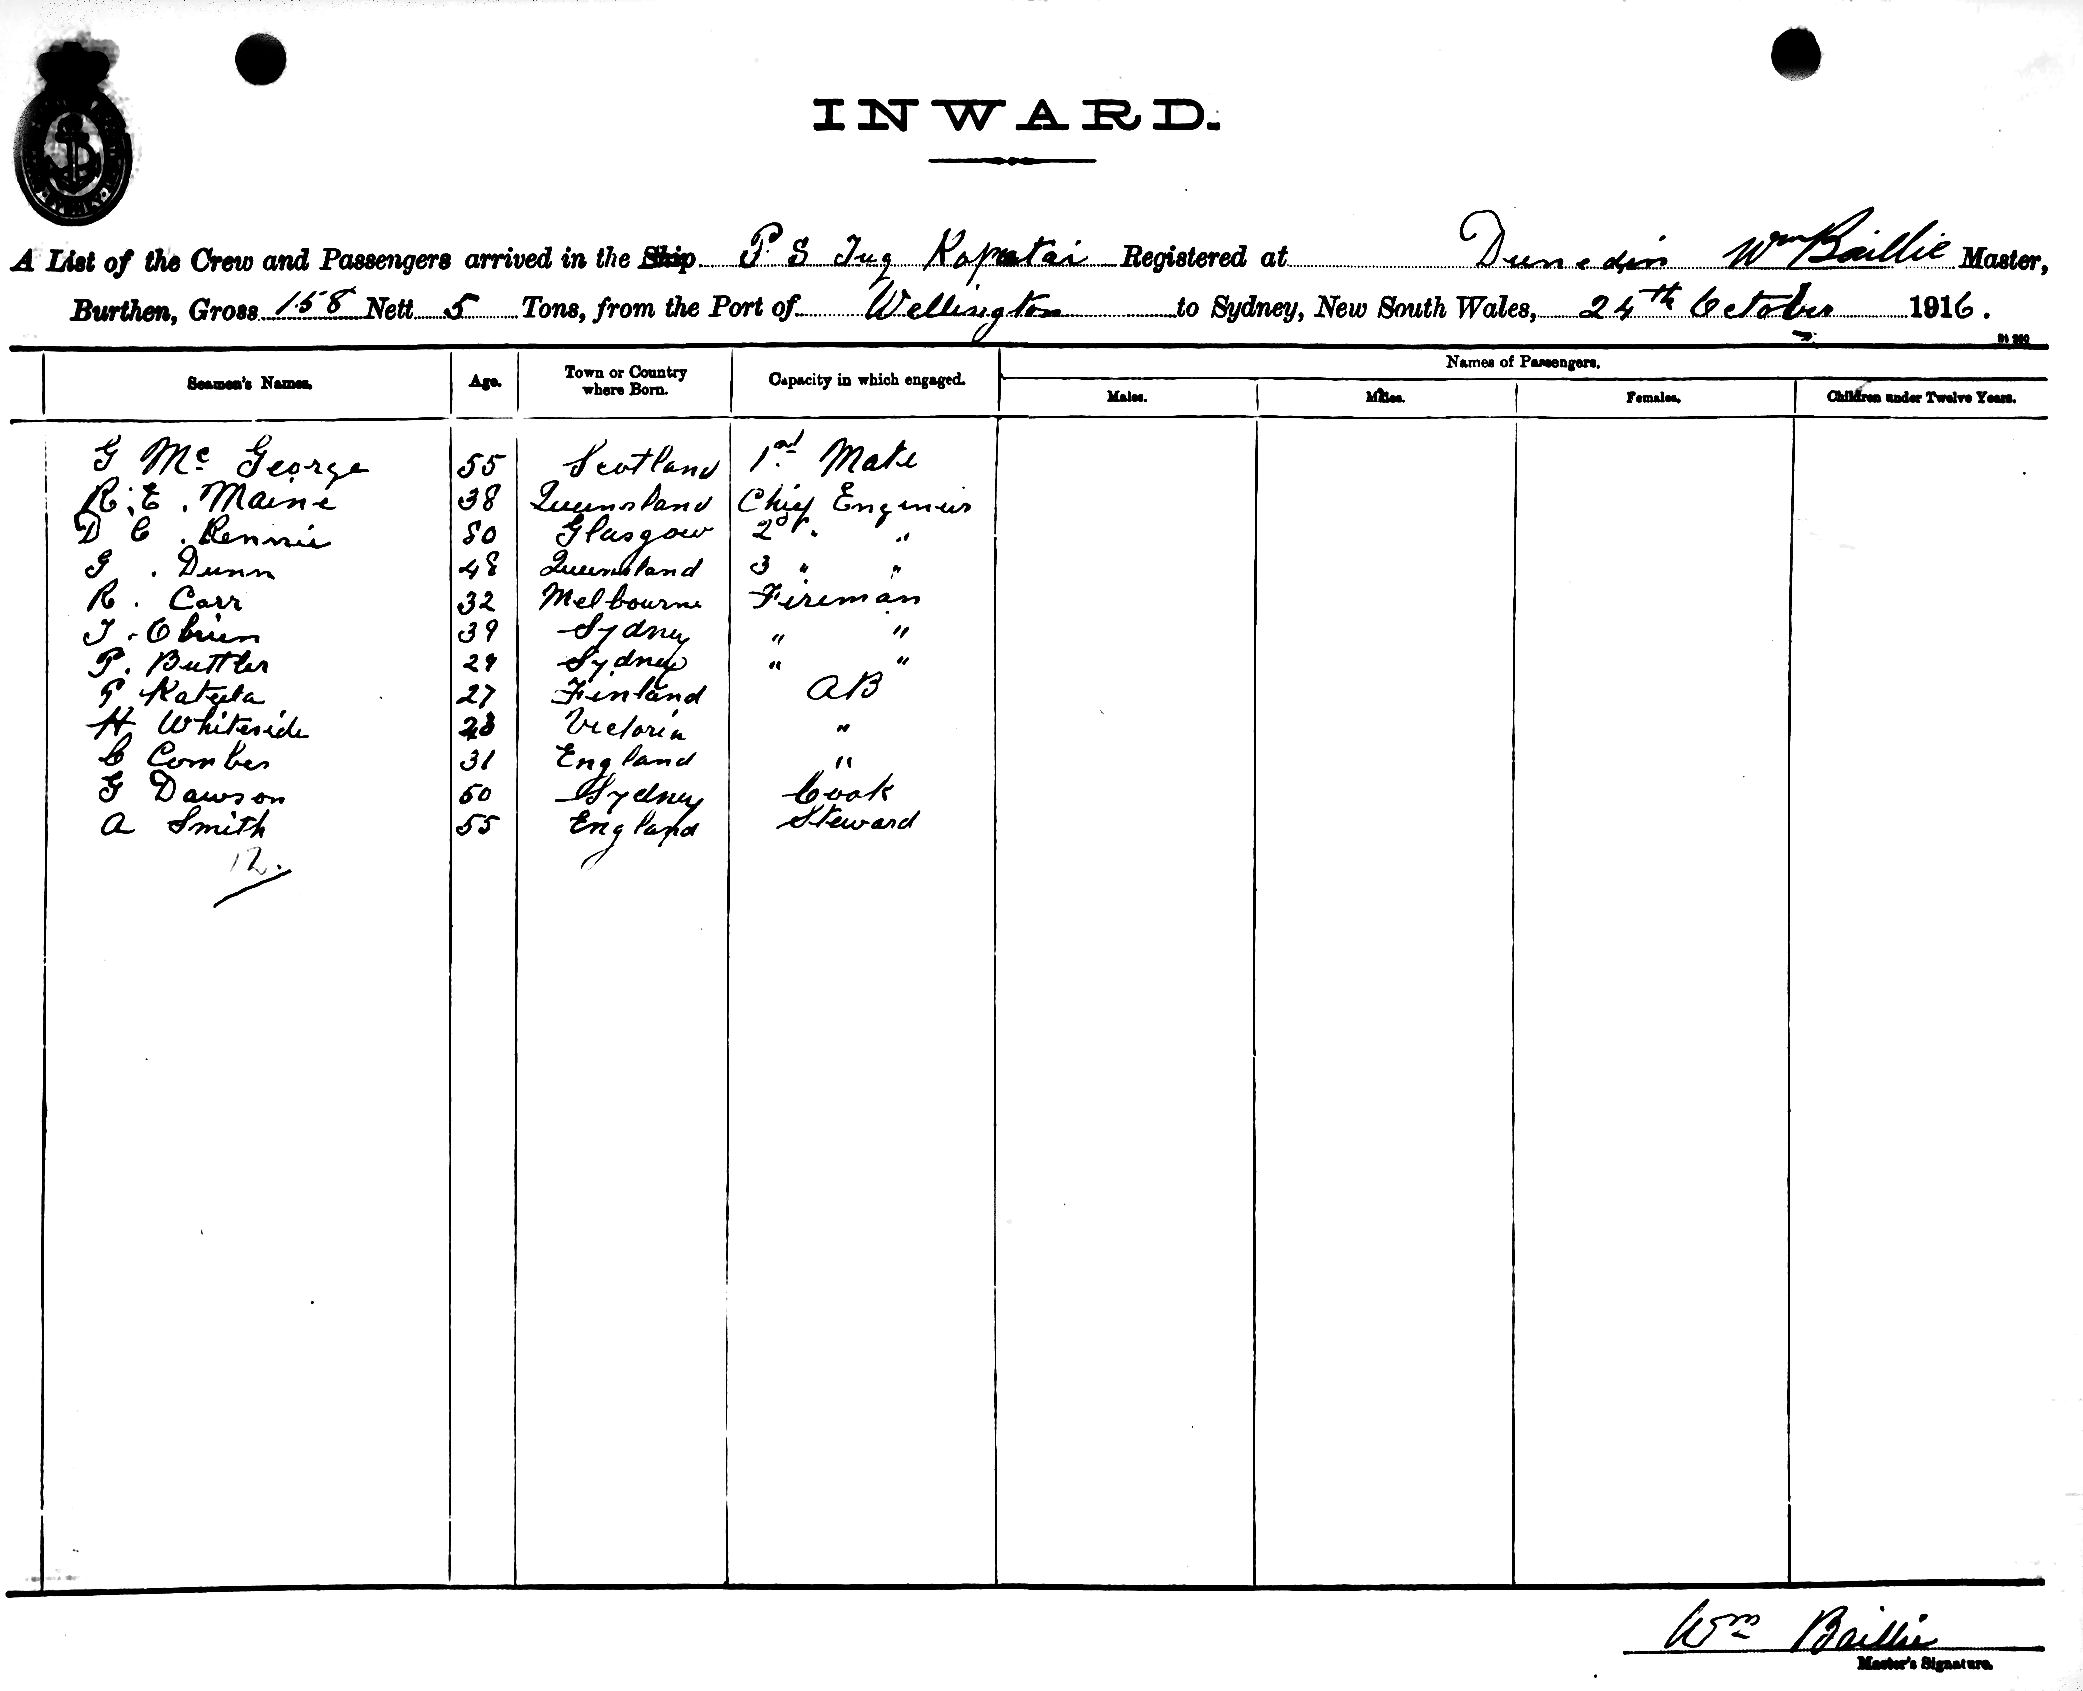 INWARD.
A List of the Crew and Passengers arrived in the Ship P S Tug Koputai Registered at Dunedin Wm Baillie Master,
Burthen, Gross 158 Nett 5 Tons, from the Port of Wellington to Sydney, New South Wales, 24th October 1916.
Names of Passengers.
Seamen's Names. Age. Town or Country where Born. Capacity in which engaged. Males. Males. Females. Children under Twelve Years.
G Mc George 55 Scotland 1st Mate
R. E. Maine 38 Queensland Chief Engineer
D C. Rennie 50 Glasgow 2nd. "
G. Dunn 48 Queensland 3 " "
R. Carr 32 Melbourne Fireman
T. Obrien 39 Sydney " "
P. Buttler 29 Sydney " "
P 27 Finland AB
H Whiteside Victoria "
C Comber 31 England "
G Dawson 50 Sydney Cook
A Smith 55 England Steward
12.
Wm Baillie
Master's Signature.